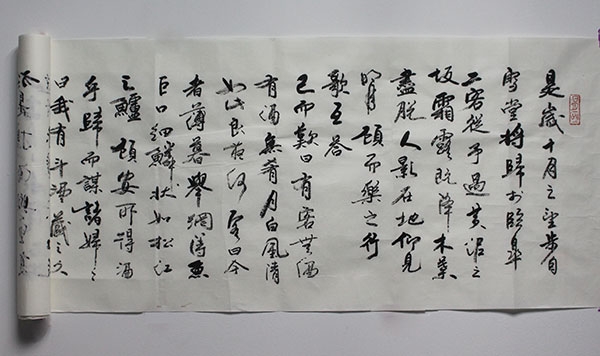 是歲十月之望步自
雪堂將歸於臨皋
二客從予過黃泥之
坂霜露既降木葉
盡脫人影在地仰見
明月顧而樂之行
歌互答
已而歎曰有客無酒
有酒無肴月白風清
如此良夜何客曰今
者薄暮舉網得魚
巨口細鱗狀如松江
之鱸顧安所得酒
乎歸而謀諸婦々
曰我有斗酒藏之久